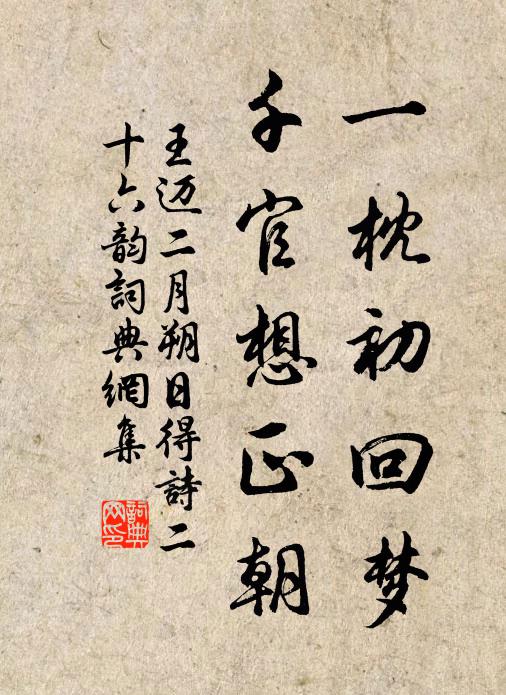 一枕初回梦
千官想正朝
王迈二月朔日得詩二
十六韵詞典網集
詞典网印